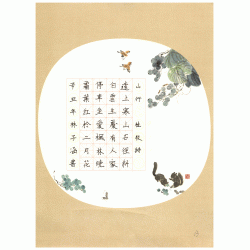 山行 杜牧詩
遠上寒山石徑斜
白雲生處有人家
停車坐愛楓林晚
霜葉紅於二月花
辛丑年林子涵書